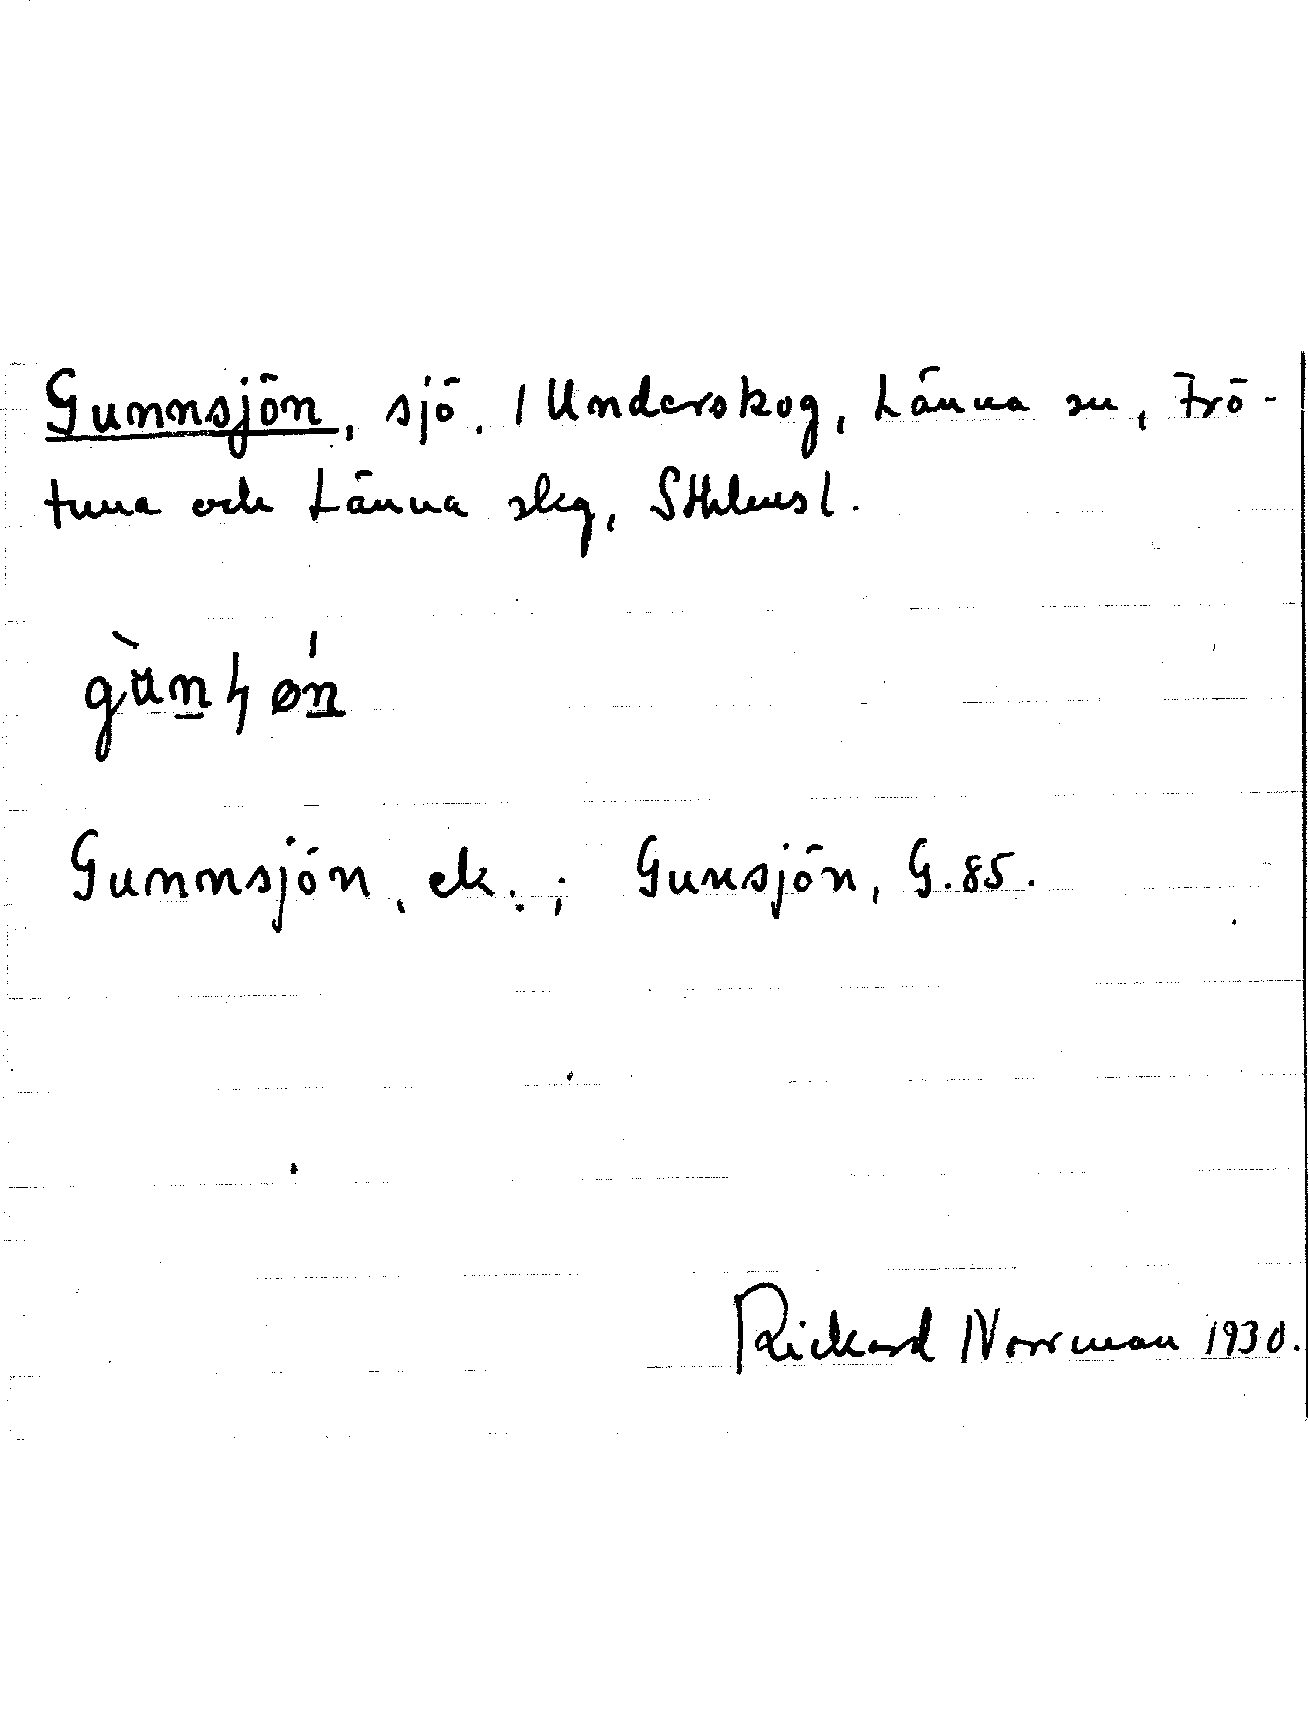 Gunnsjön, sjö. / Underskog, Länna sn, Frö-
tuna och Länna skg, Sthlms l.
gùnɧøń
Gunnsjön, ek.; Gunsjön, G.85.
Rickard Norrman 1930.